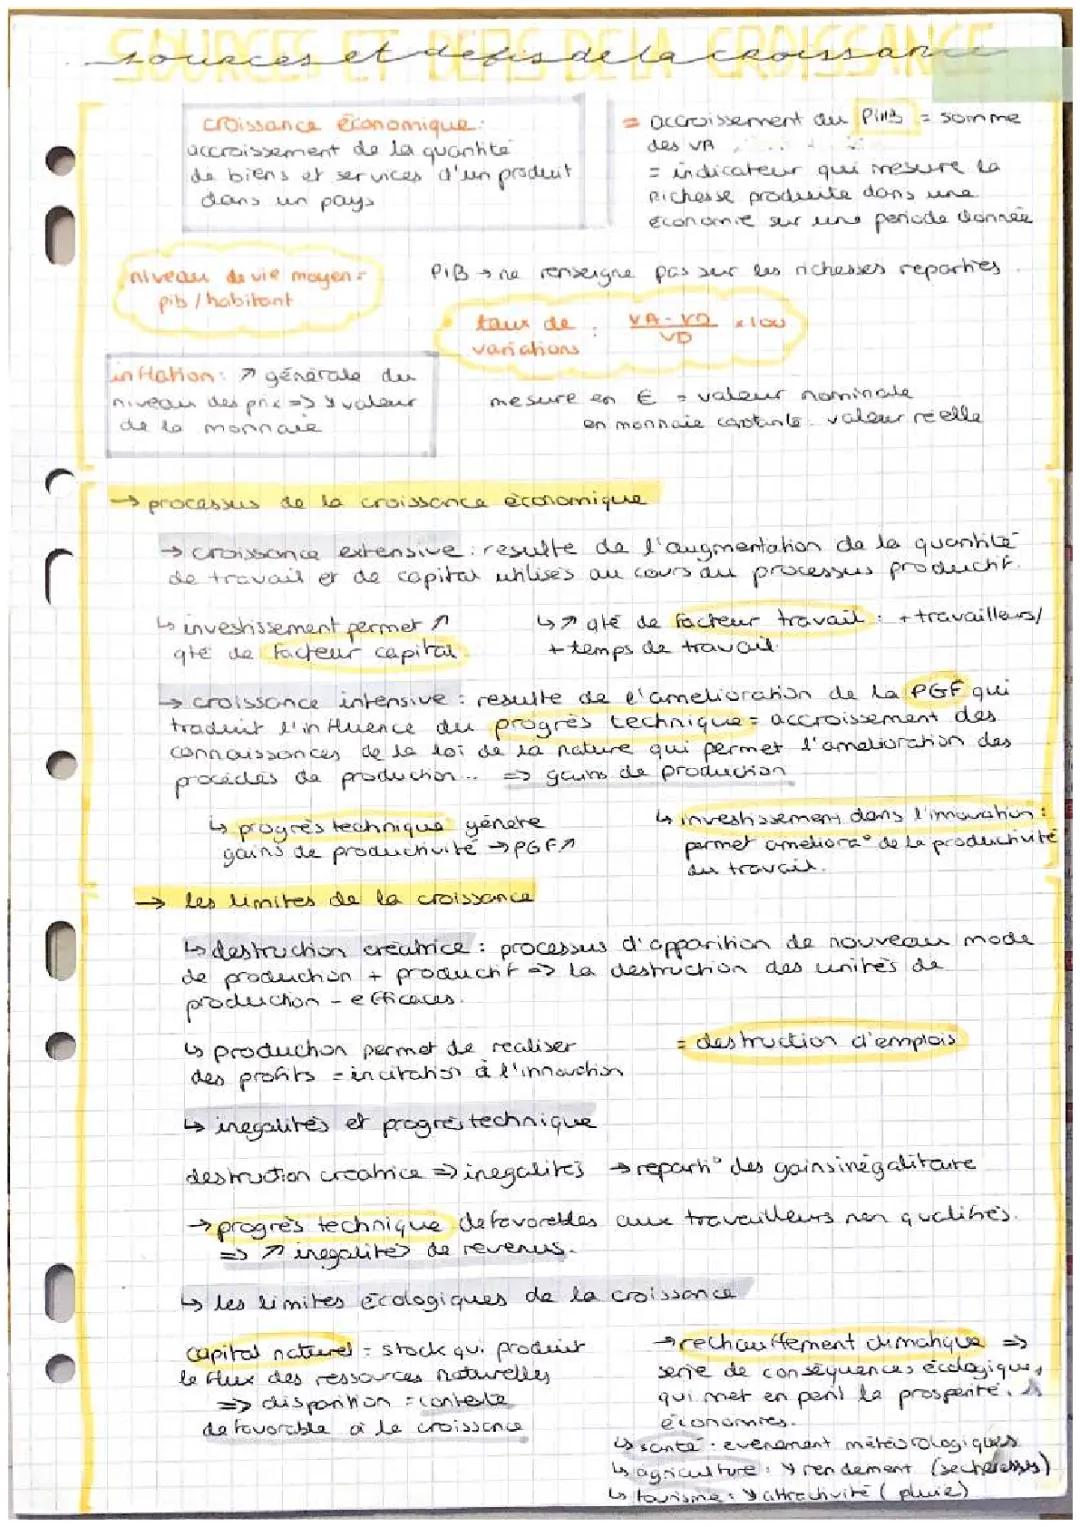 SOURCES ET DEFIS DE LA CROISSANCE
sources et defis de la croissance
croissance économique:
accroissement de la quantité
de biens et services d'un produit
dans un pays
= accroissement du PIB = somme
des VA
= indicateur qui mesure la
richesse produite dans une
économie sur une periode donnée
niveau de vie moyen =
pib / habitant
PIB → ne renseigne pas sur les richesses reparties
taux de : VA - VD x 100
variations VD
inflation: ↗ générale du
niveau des prix => ↘ valeur
de la monnaie
mesure en € = valeur nominale
en monnaie valeur réelle
→ processus de la croissance économique
→ croissance extensive : resulte de l'augmentation de la quantité
de travail et de capital utilisés au cours du processus productif.
↳ investissement permet ↗
qté de facteur capital
↳ ↗ qté de facteur travail : + travailleurs/
+ temps de travail
→ croissance intensive : resulte de l'amelioration de la PGF qui
traduit l'influence du progrès technique = accroissement des
connaissances de la loi de la nature qui permet l'amelioration des
procédés de production... => gains de production
↳ progrès technique génère
gains de productivité → PGF ↗
↳ investissement dans l'innovation :
permet ameliora° de la productivité
du travail.
→ les limites de la croissance
↳ destruction creatrice : processus d'apparition de nouveau mode
de production + productif => la destruction des unités de
production - efficaces.
↳ production permet de realiser
des profits = incitation à l'innovation
= destruction d'emplois
↳ inegalités et progrès technique
destruction creatrice => inegalités → reparti° des gains inégalitaire
→ progrès technique defavorables aux travailleurs non qualifiés.
=> ↗ inegalités de revenus.
↳ les limites écologiques de la croissance
capital naturel = stock qui produit
le flux des ressources naturelles
=> disparition = contexte
defavorable à la croissance
→ rechauffement climatique =>
serie de conséquences écologiques,
qui met en peril la prosperité
économies.
↳ santé : evenement météorologiques
↳ agriculture : ↘ rendement (secheresses)
↳ tourisme : ↘ attractivité (pluie)